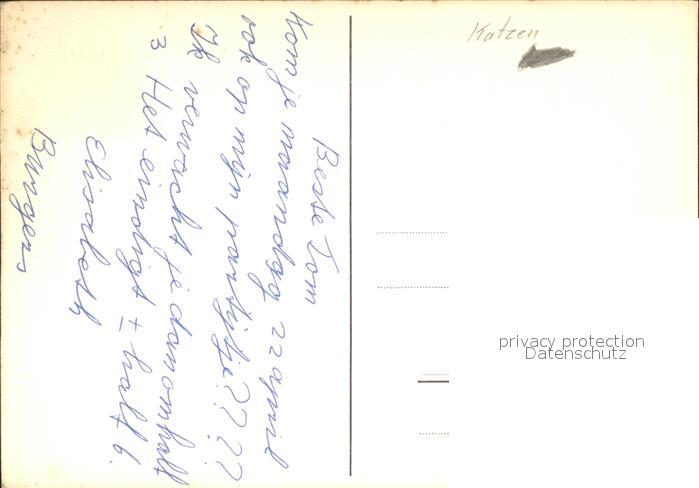 Beste Tom
Kom je maandag 22 april
ook op mijn partijtje????
Ik verwacht je dan om half
3 Het eindigt ± half 6.
Elisabeth
Burgers
Katzen
privacy protection
Datenschutz